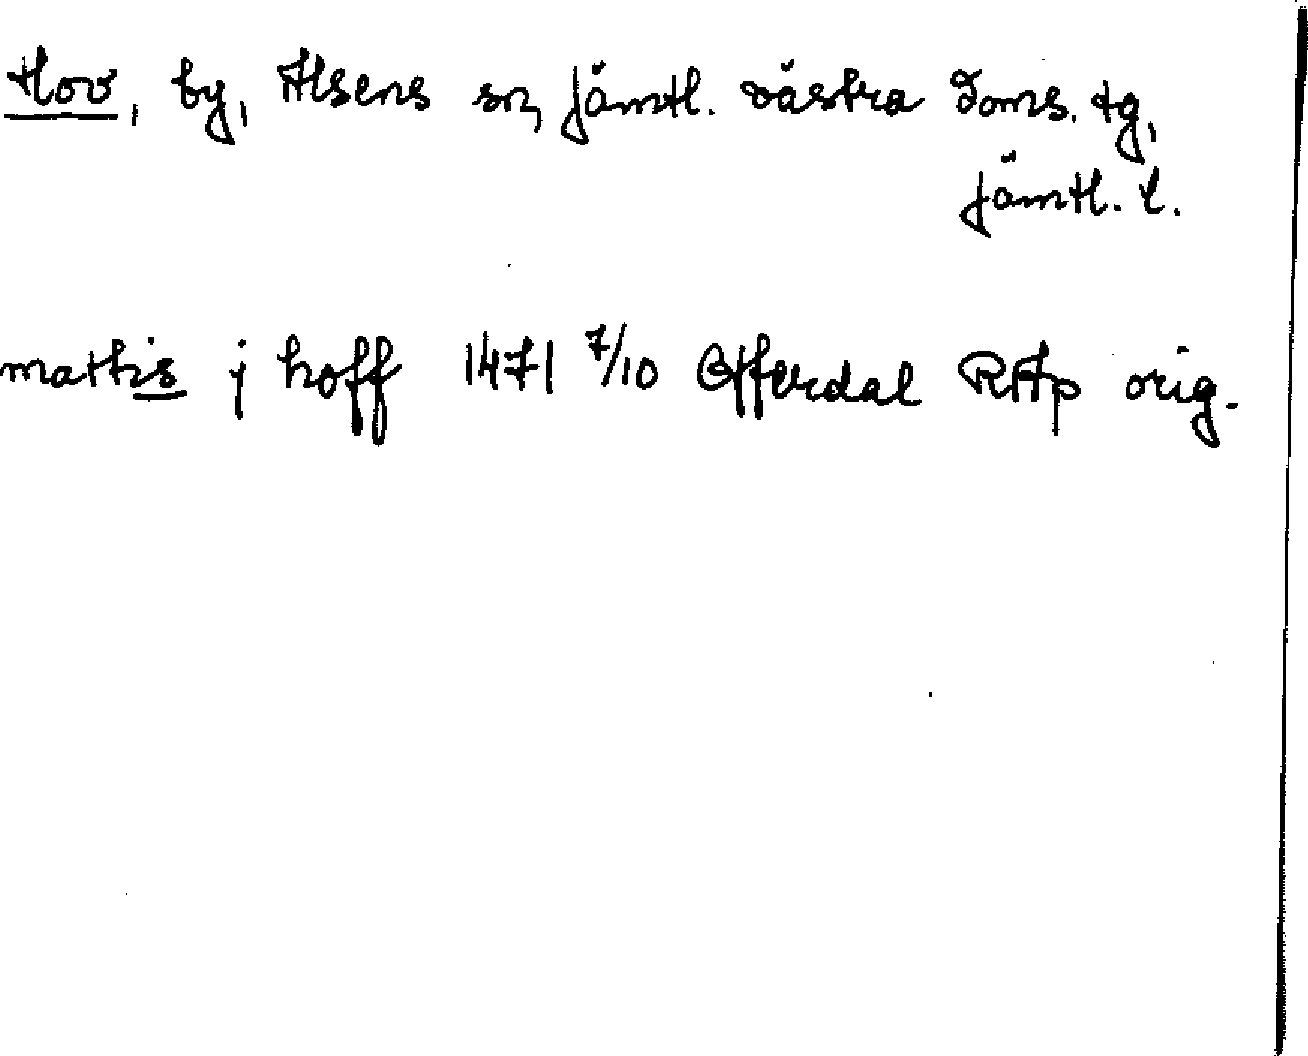 Hov, by, Alsens sn, Jämtl. västra doms. tg,
Jämtl. l.
mathis j hoff 1471 7/10 Offerdal RAp orig.